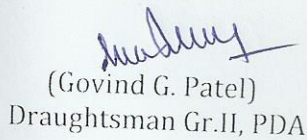 (Govind G. Patel)
Draughtsman Gr.II, PDA